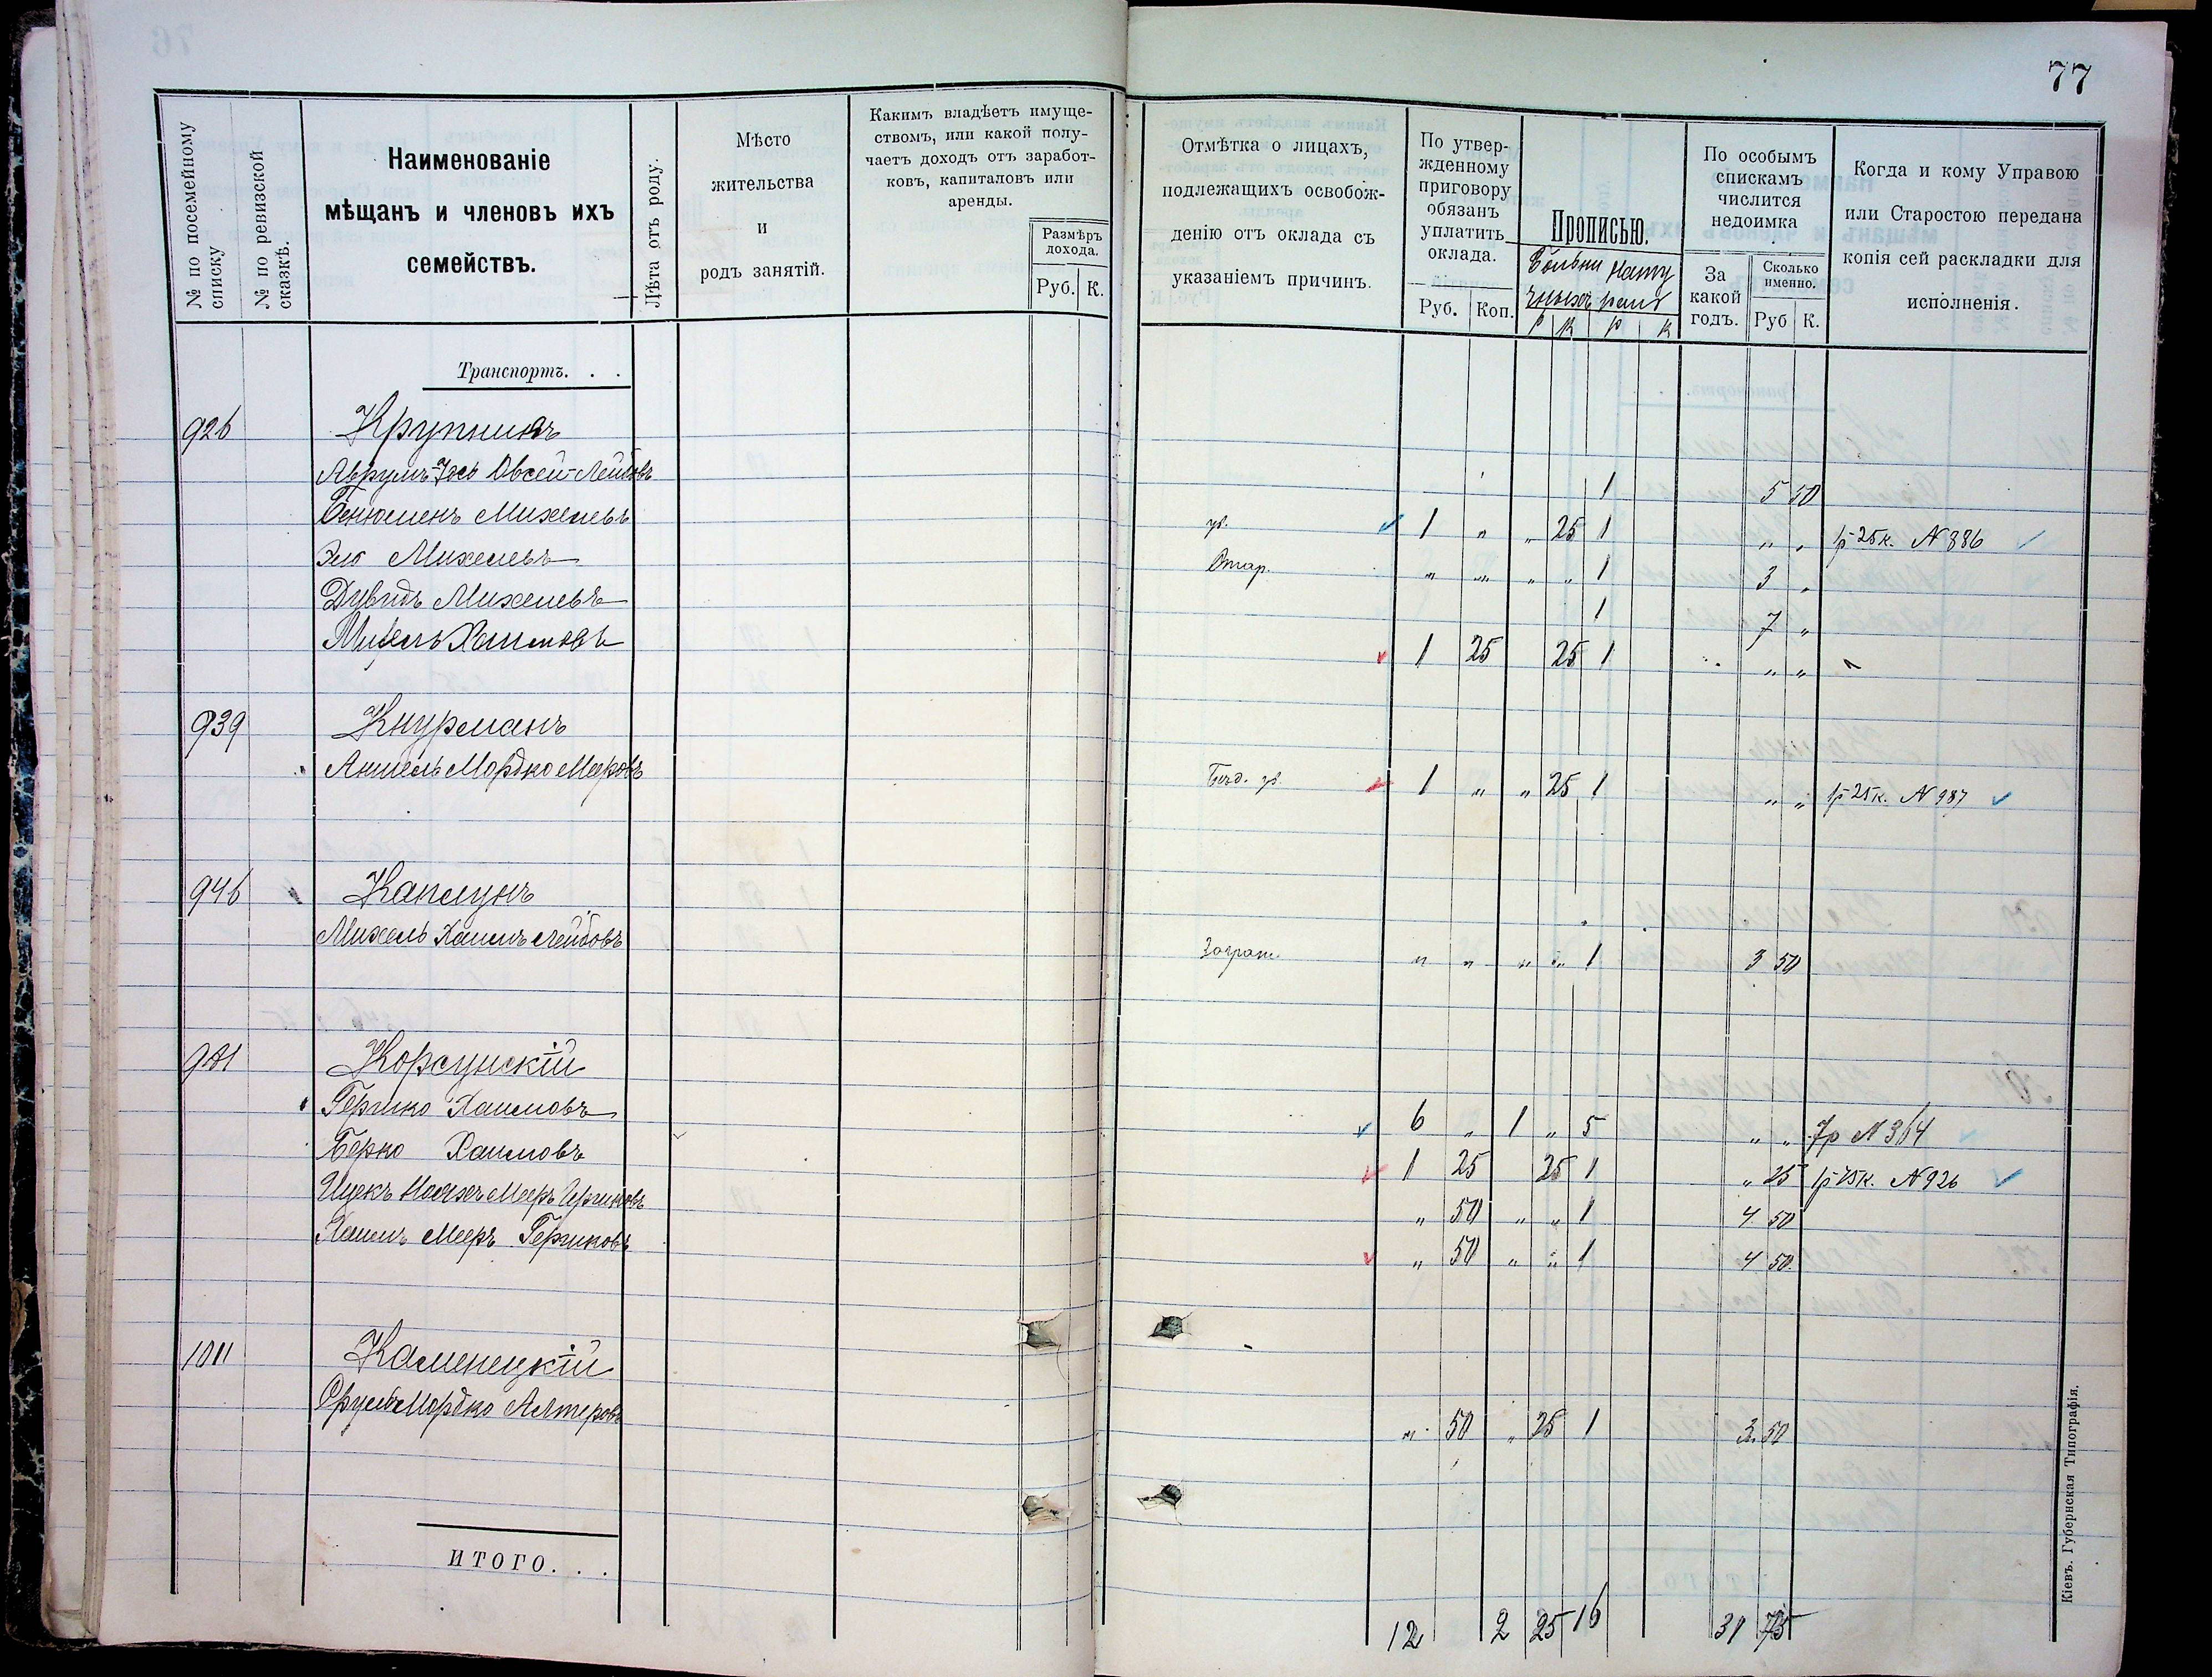 77
№ по посемейному списку
№ по ревизской сказкѣ.
Наименованіе
мѣщанъ и членовъ ихъ
семействъ.
Лѣта отъ роду.
Мѣсто
жительства
и
родъ занятій.
Какимъ владѣетъ имуще-
ствомъ, или какой полу-
чаетъ доходъ отъ заработ-
ковъ, капиталовъ или
аренды.
Размѣръ
дохода.
Руб. К.
Отмѣтка о лицахъ,
подлежащихъ освобож-
денію отъ оклада съ
указаніемъ причинъ.
По утвер-
жденному
приговору
обязанъ
уплатить
оклада.
Руб. Коп.
Прописью.
р к р к
По особымъ
спискамъ
числится
недоимка
За
какой
годъ.
Сколько
именно.
Руб К.
Когда и кому Управою
или Старостою передана
копія сей раскладки для
исполненія.
Транспортъ. . .
926 Крупникъ
Аврумъ-Іось Овсей-Лейбовъ 1 5 50
Бенюменъ Михелевъ 1 „ „ 25 1 „ „ 1р 25к. N 386
Эло Михелевъ „ „ „ „ 1 3 „
Дувидъ Михелевъ 1 7 „
Михель Хаимовъ 1 25 25 1 „ „
939 Кнурманъ
Аншель Мордко Мееровъ 1 „ „ 25 1 „ „ 1р 25к. N 987
946 Каплунъ
Михель Хаимъ Лейбовъ Загран. „ „ „ „ 1 3 50
981 Корсунскій
Гершко Хаимовъ 6 „ 1 „ 5 „ „ 7р N 364
Берко Хаимовъ 1 25 25 1 „ 25 1р 75к. N 926
Ицекъ Меер „ 50 „ „ 1 4 50
Хаимъ Мееръ Гершковъ „ 50 „ „ 1 4 50
1011 Каменецкій
Сруль Мордко Алтеровъ „ 50 „ 25 1 3 50
ИТОГО. . .
12 2 25 16 31 75
Кіевъ. Губернская Типографія.